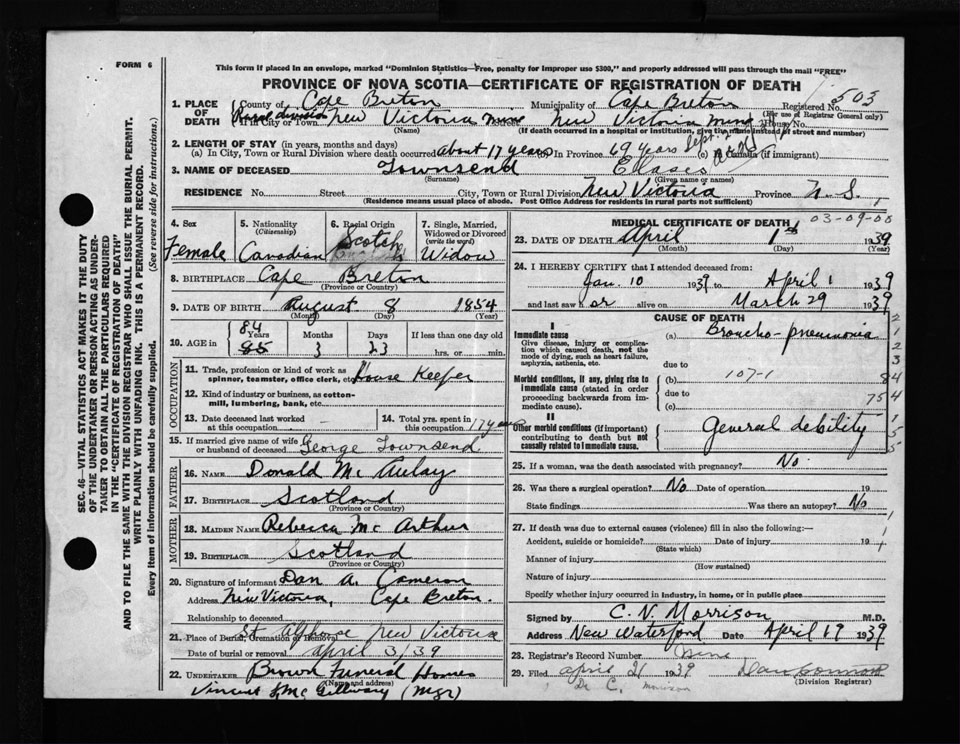 FORM 6
This form if placed in an envelope, marked "Dominion Statistics—Free, penalty for improper use $300," and properly addressed will pass through the mail "FREE"
PROVINCE OF NOVA SCOTIA—CERTIFICATE OF REGISTRATION OF DEATH
1. PLACE OF DEATH County of Cape Breton Municipality of Cape Breton Registered No. 503
(For use of Registrar General only)
Rural division If in City or Town New Victoria Mine Street New Victoria Mine House No.
(Name) (If death occurred in a hospital or institution, give the name instead of street and number)
2. LENGTH OF STAY (in years, months and days)
(a) In City, Town or Rural Division where death occurred about 17 years In Province 69 years (c) Canada (if immigrant)
3. NAME OF DECEASED Townsend
(Surname) (Given name or names)
RESIDENCE No. Street City, Town or Rural Division New Victoria Province N. S.
(Residence means usual place of abode. Post Office Address for residents in rural parts not sufficient)
4. Sex 5. Nationality (Citizenship) 6. Racial Origin 7. Single, Married, Widowed or Divorced (write the word)
Female Canadian Scotch Widow
8. BIRTHPLACE Cape Breton
(Province or Country)
9. DATE OF BIRTH August 8 1854
(Month) (Day) (Year)
84
10. AGE in Years Months Days If less than one day old
85 3 23 hrs. or min.
OCCUPATION
11. Trade, profession or kind of work as spinner, teamster, office clerk, etc. House Keeper
12. Kind of industry or business, as cotton-mill, lumbering, bank, etc.
13. Date deceased last worked at this occupation 14. Total yrs. spent in this occupation 17 years
15. If married give name of wife or husband of deceased George Townsend
FATHER
16. NAME Donald Mc Aulay
17. BIRTHPLACE Scotland
(Province or Country)
MOTHER
18. MAIDEN NAME Rebecca Mc Arthur
19. BIRTHPLACE Scotland
(Province or Country)
20. Signature of informant Dan A. Cameron
Address New Victoria, Cape Breton.
Relationship to deceased
21. Place of Burial, Cremation or Removal St Alphonse New Victoria
Date of burial or removal April 3/39
22. UNDERTAKER Brown Funeral Homes
(Name and address)
Vincent J Mc Gillivary (Mgr)
MEDICAL CERTIFICATE OF DEATH
03-09-00
23. DATE OF DEATH April 1st 1939
(Month) (Day) (Year)
24. I HEREBY CERTIFY that I attended deceased from:
Jan. 10 1939 to April 1 1939
and last saw her alive on March 29 1939
CAUSE OF DEATH
I
Immediate cause (a) Broncho-pneumonia
Give disease, injury or complication which caused death, not the mode of dying, such as heart failure, asphyxia, asthenia, etc.
due to
Morbid conditions, if any, giving rise to immediate cause (stated in order proceeding backwards from immediate cause).
(b) 107-1 84
due to 754
(c)
II
Other morbid conditions (if important) contributing to death but not causally related to immediate cause.
General debility
25. If a woman, was the death associated with pregnancy? No.
26. Was there a surgical operation? No Date of operation 19
State findings Was there an autopsy? No
27. If death was due to external causes (violence) fill in also the following:—
Accident, suicide or homicide? Date of injury 19
(State which)
Manner of injury
(How sustained)
Nature of injury
Specify whether injury occurred in industry, in home, or in public place
Signed by C. N. Morrison M.D.
Address New Waterford Date April 19 1939
28. Registrar's Record Number
29. Filed April 21 1939
(Division Registrar)
Dr C. Morrison
SEC. 46—VITAL STATISTICS ACT MAKES IT THE DUTY
OF THE UNDERTAKER OR PERSON ACTING AS UNDER-
TAKER TO OBTAIN ALL THE PARTICULARS REQUIRED
IN THE "CERTIFICATE OF REGISTRATION OF DEATH"
AND TO FILE THE SAME WITH THE DIVISION REGISTRAR WHO SHALL ISSUE THE BURIAL PERMIT.
WRITE PLAINLY WITH UNFADING INK. THIS IS A PERMANENT RECORD.
Every item of information should be carefully supplied. (See reverse side for instructions.)